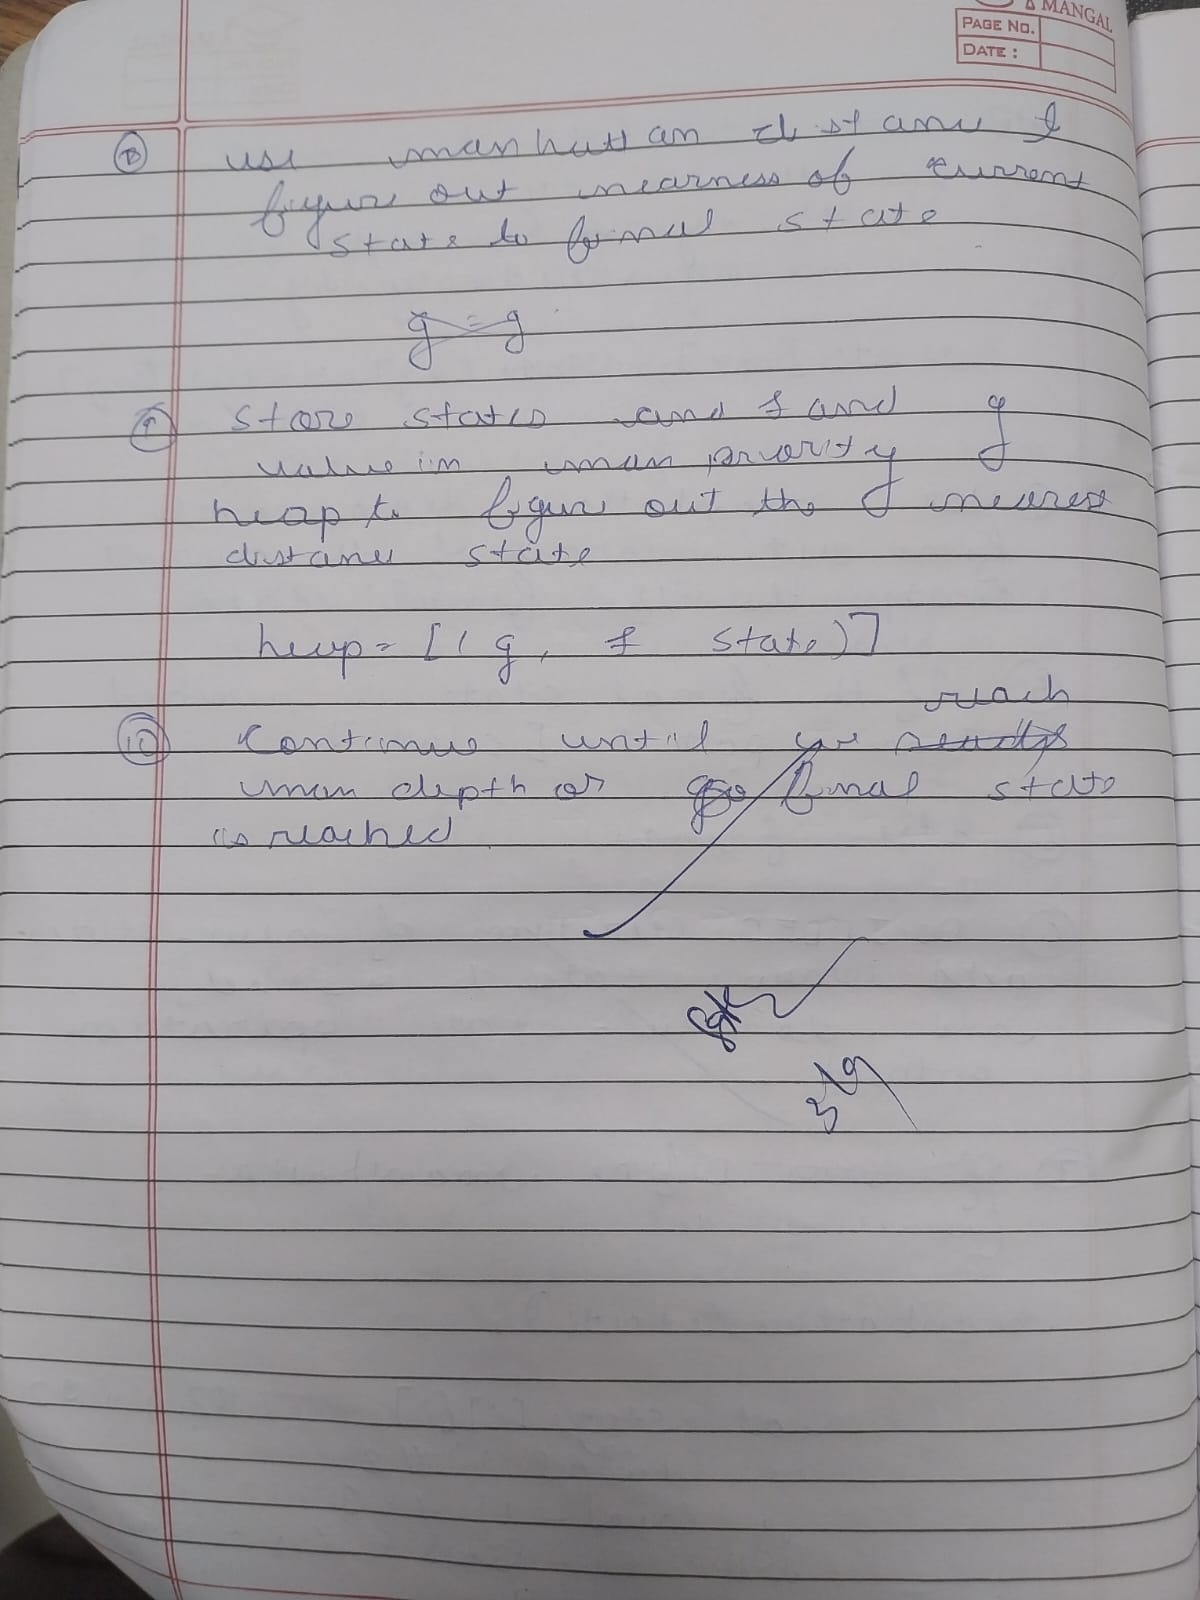 MANGAL
PAGE NO.
DATE :
⑧ use manhattan distance &
figure out nearness of current
state to final state
g = g
⑨ store states and f and g
value in man priority
heap to figure out the nearest
distance state
heap = [( g, f state)]
reach
⑩ Continue until we
man depth or final state
is reached
3/9